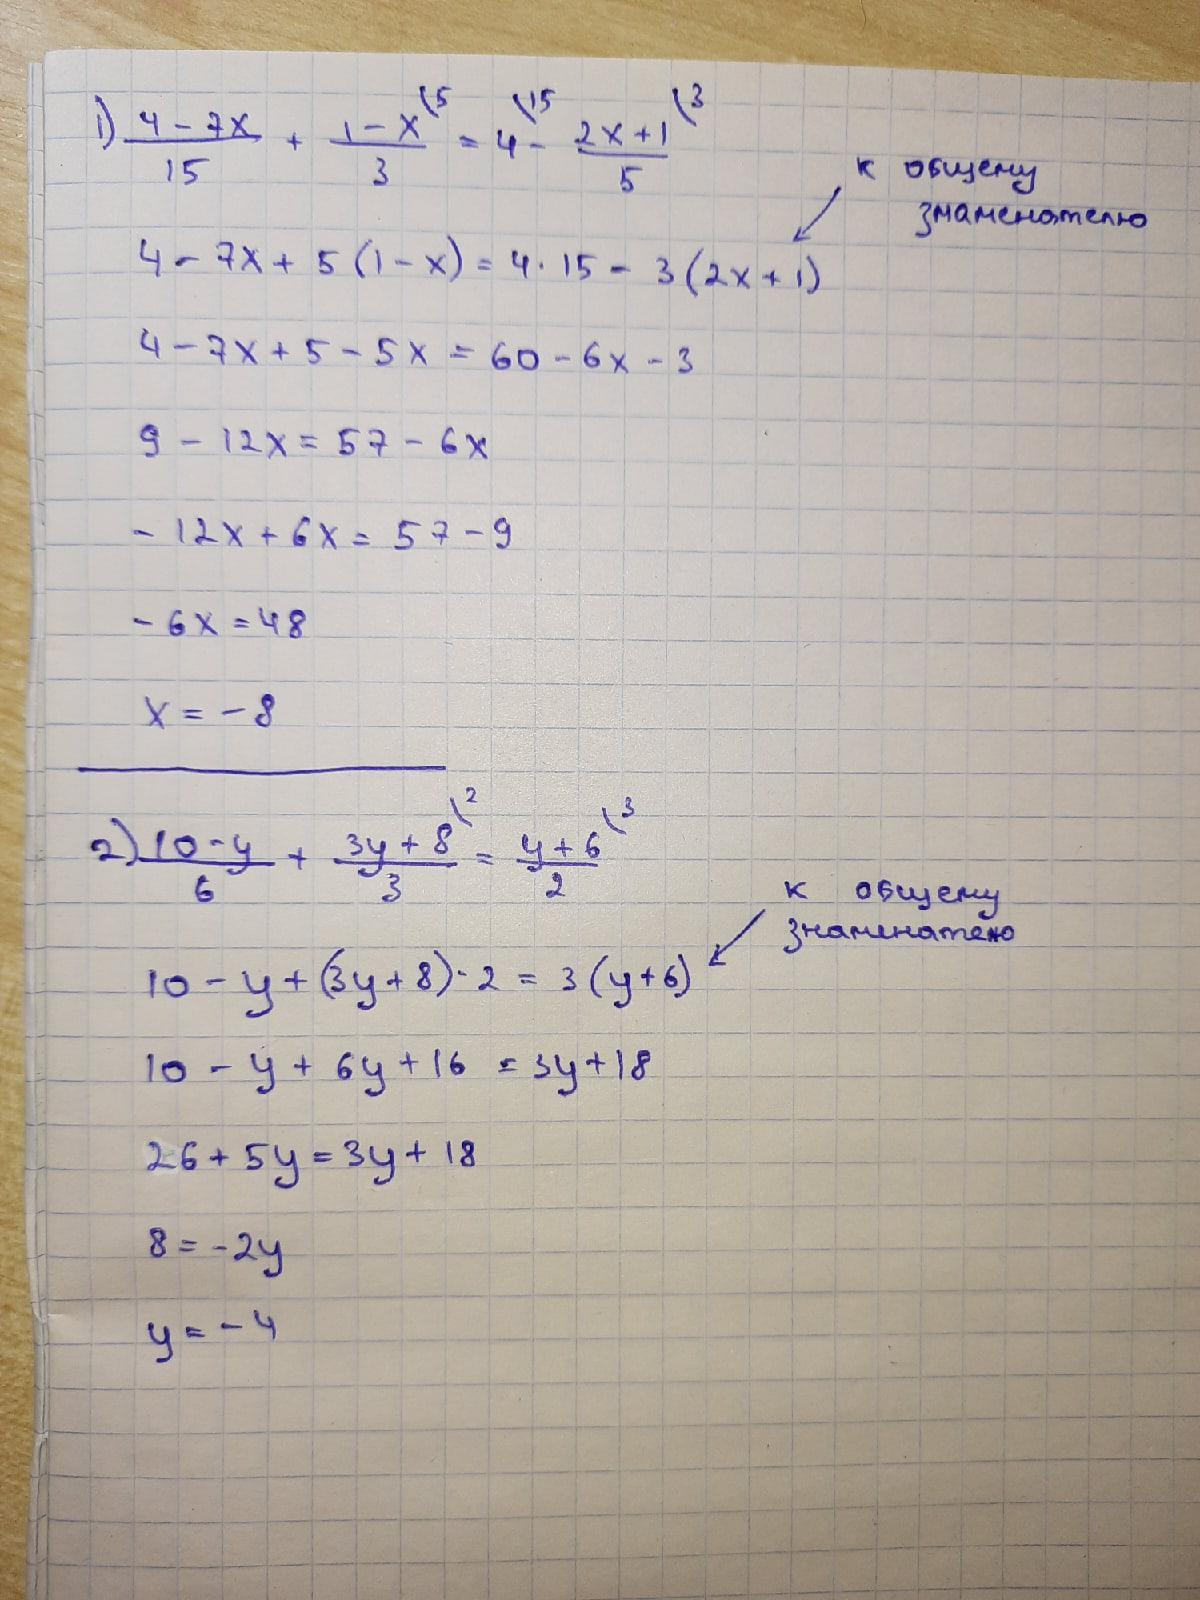 1) (4-7x)/15 + (1-x)/3 \5 = 4 \15 - (2x+1)/5 \3
к общему
знаменателю
4-7x+5(1-x)=4·15-3(2x+1)
4-7x+5-5x=60-6x-3
9-12x=57-6x
-12x+6x=57-9
-6x=48
x=-8
2) (10-y)/6 + (3y+8)/3 \2 = (y+6)/2 \3
к общему
знаменателю
10-y+(3y+8)·2=3(y+6)
10-y+6y+16=3y+18
26+5y=3y+18
8=-2y
y=-4